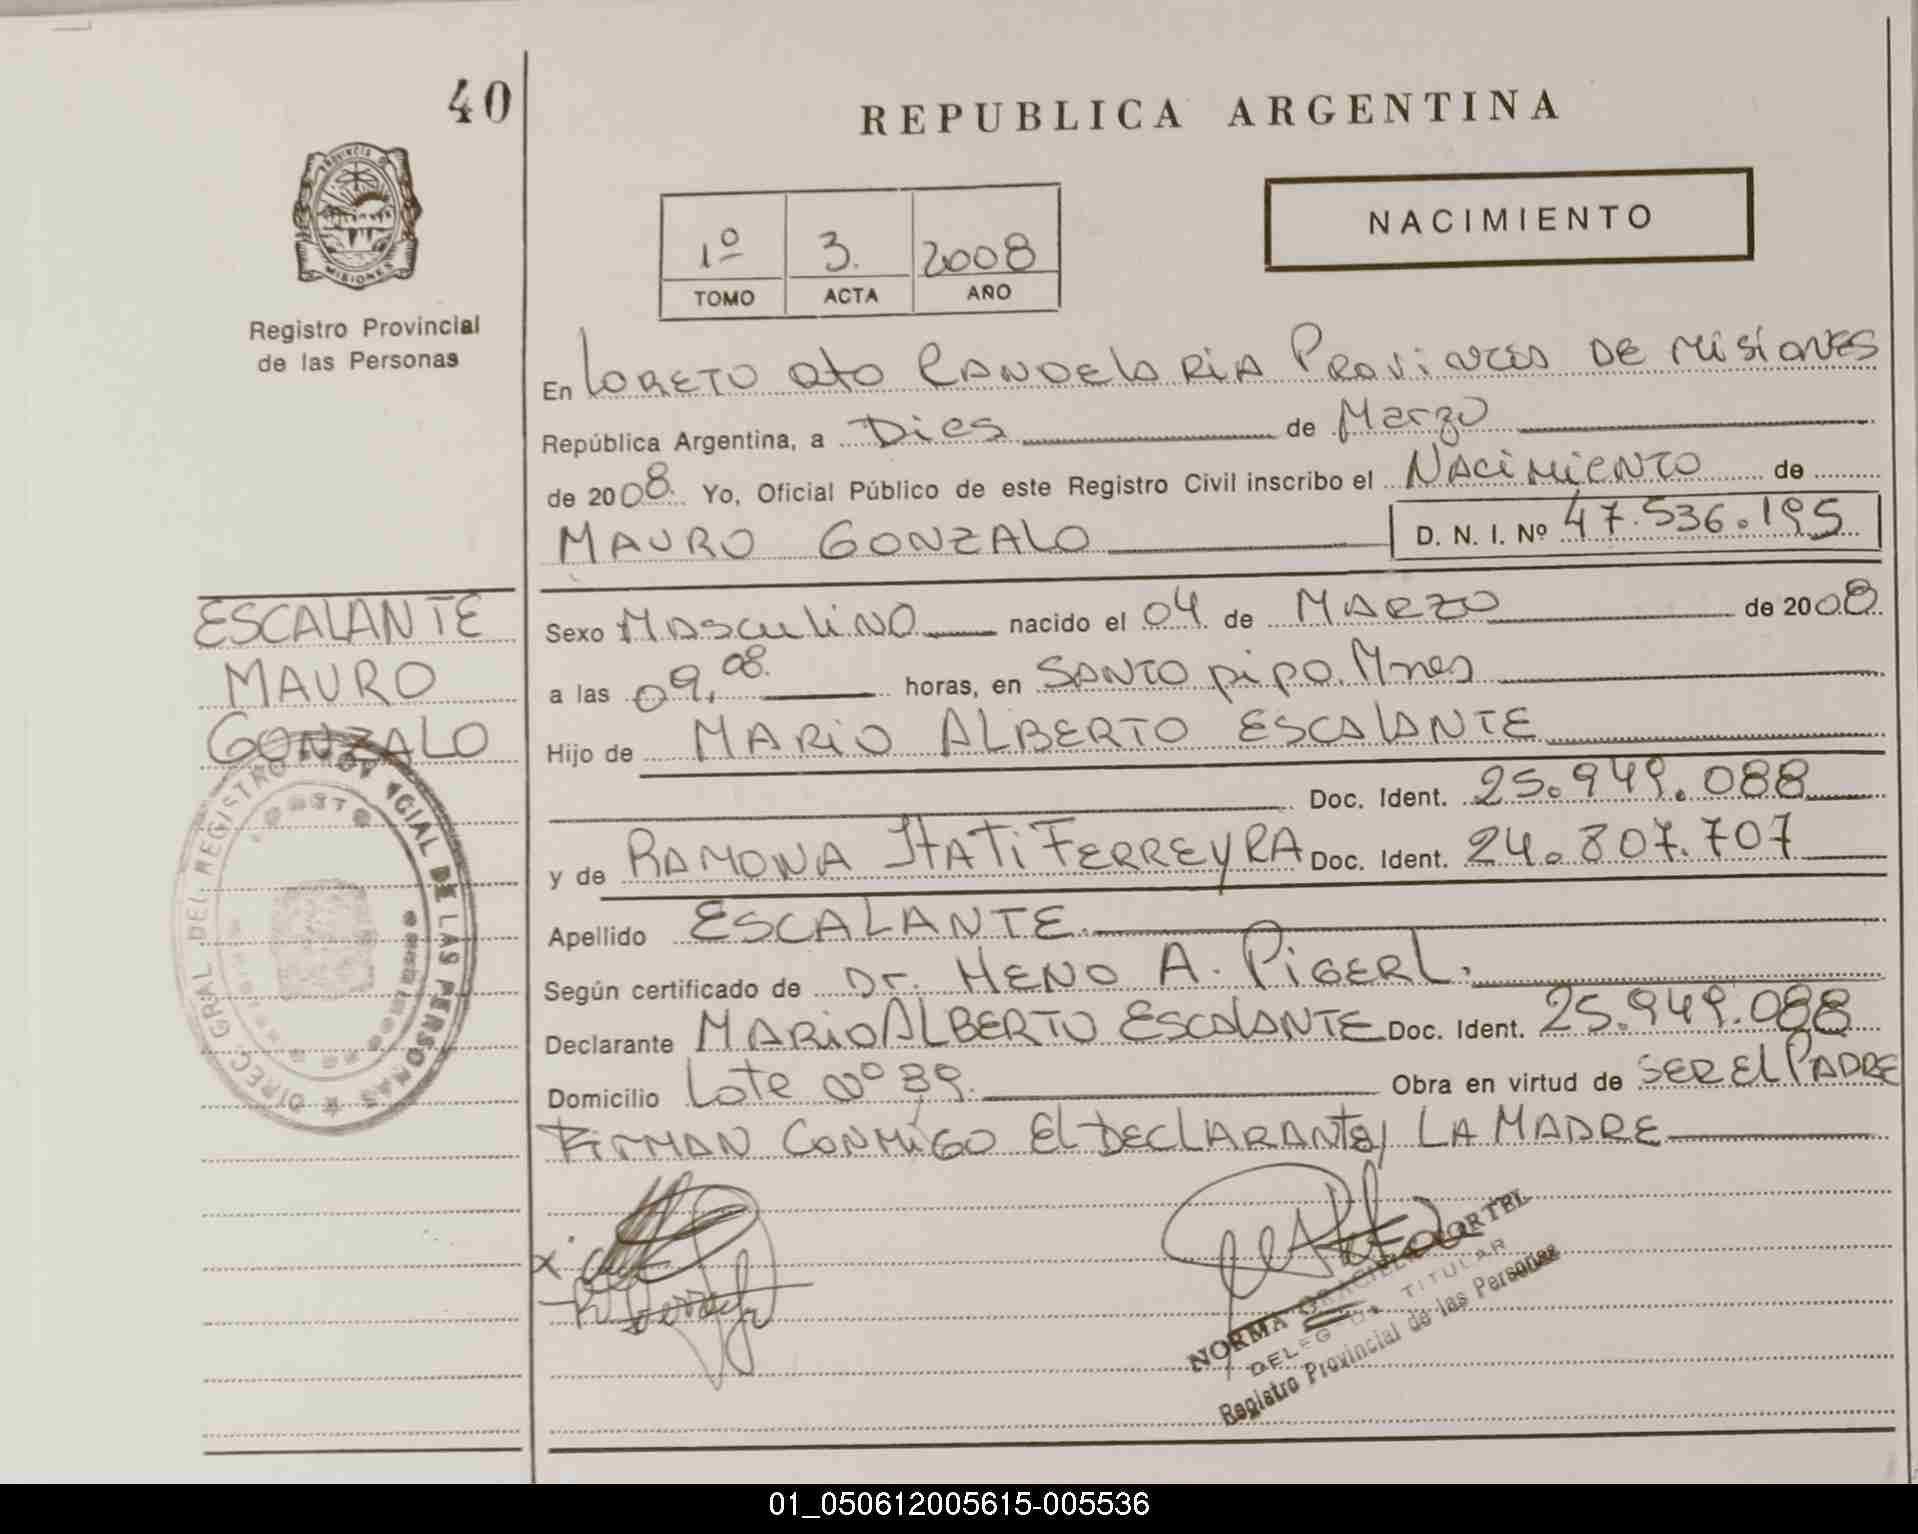 40
REPUBLICA ARGENTINA
PROVINCIA DE
MISIONES
Registro Provincial
de las Personas
1º 3. 2008
TOMO ACTA AÑO
NACIMIENTO
En LORETO Dto CANDELARIA PROVINCIA DE MISIONES
República Argentina, a Dies de Marzo
de 2008. Yo, Oficial Público de este Registro Civil inscribo el NACIMIENTO de
MAURO GONZALO D. N. I. Nº 47.536.195
ESCALANTE
MAURO
GONZALO
Sexo MASCULINO nacido el 04 de MARZO de 2008.
a las 09,08. horas, en SANTO PIPO. Mnes
Hijo de MARIO ALBERTO ESCALANTE
Doc. Ident. 25.949.088
y de RAMONA ITATI FERREYRA Doc. Ident. 24.807.707
Apellido ESCALANTE.
Según certificado de Dr. HENO A. PIGERL.
Declarante MARIO ALBERTO ESCALANTE Doc. Ident. 25.949.088
Domicilio Lote Nº 39. Obra en virtud de SER El PADRE
FIRMAN CONMIGO El DECLARANTE, LA MADRE
DIREC. GRAL DEL REGISTRO PROVINCIAL DE LAS PERSONAS
NORMA GRACIELA
DELEGADA TITULAR
Registro Provincial de las Personas
01_050612005615-005536